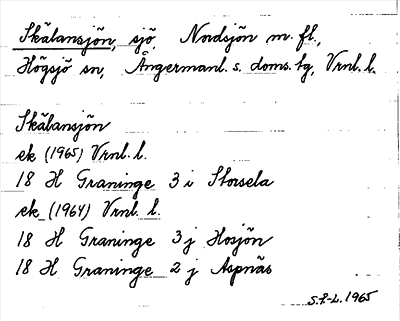 Skålansjön, sjö, Nordsjön m. fl.,
Högsjö sn, Ångermanl. s. doms. tg, Vrnl. l.
Skålansjön
ek (1965) Vrnl. l.
18 H Graninge 3 i Storsela
ek (1964) Vrnl. l.
18 H Graninge 3 j Hosjön
18 H Graninge 2 j Aspnäs
S.P-L. 1965